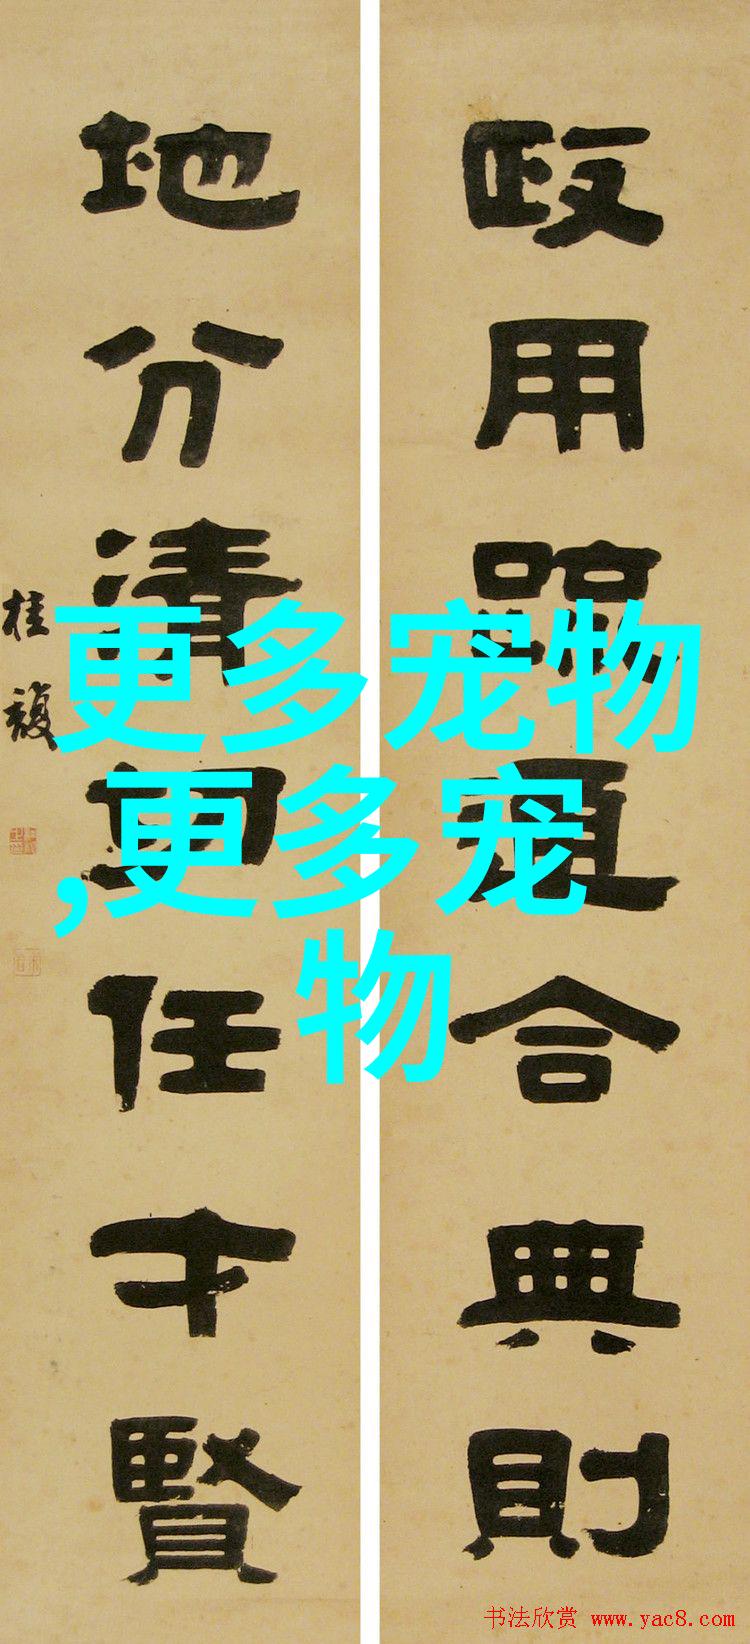 政用疏通合典則
地分清切任才賢
桂馥
更多宠物
,更多宠
物
书法欣赏 www.yac8.com